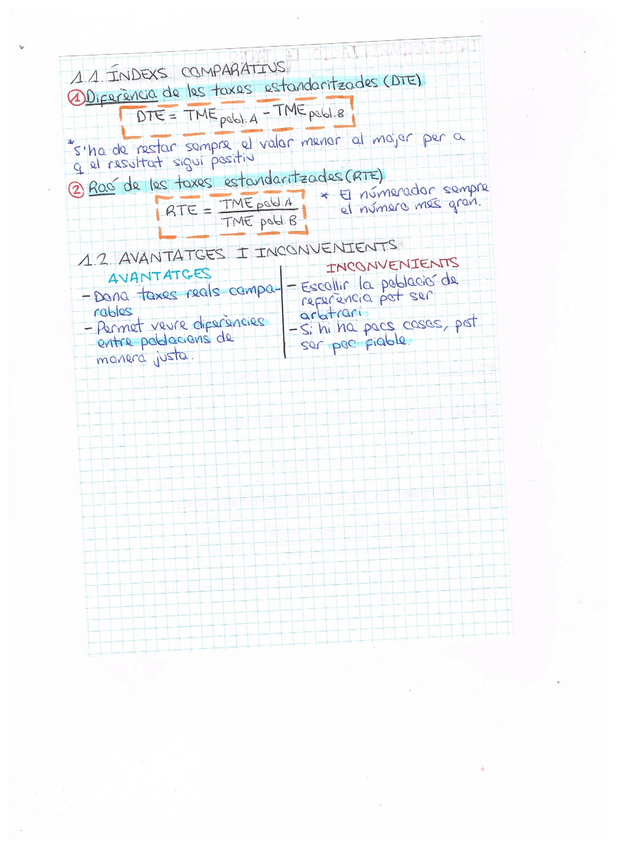 1.1. ÍNDEXS COMPARATIUS
① Diferència de les taxes estandaritzades (DTE)
DTE = TME pobl. A - TME pobl. B
* S'ha de restar sempre el valor menor al major per a
q el resultat sigui positiu
② Raó de les taxes estandaritzades (RTE)
RTE = TME pobl. A / TME pobl. B
* El númerador sempre
el número més gran.
1.2. AVANTATGES I INCONVENIENTS
AVANTATGES
- Dona taxes reals compa-
rables
- Permet veure diferències
entre poblacions de
manera justa.
INCONVENIENTS
- Escollir la població de
referència pot ser
arbitrari
- Si hi ha pocs casos, pot
ser poc fiable.